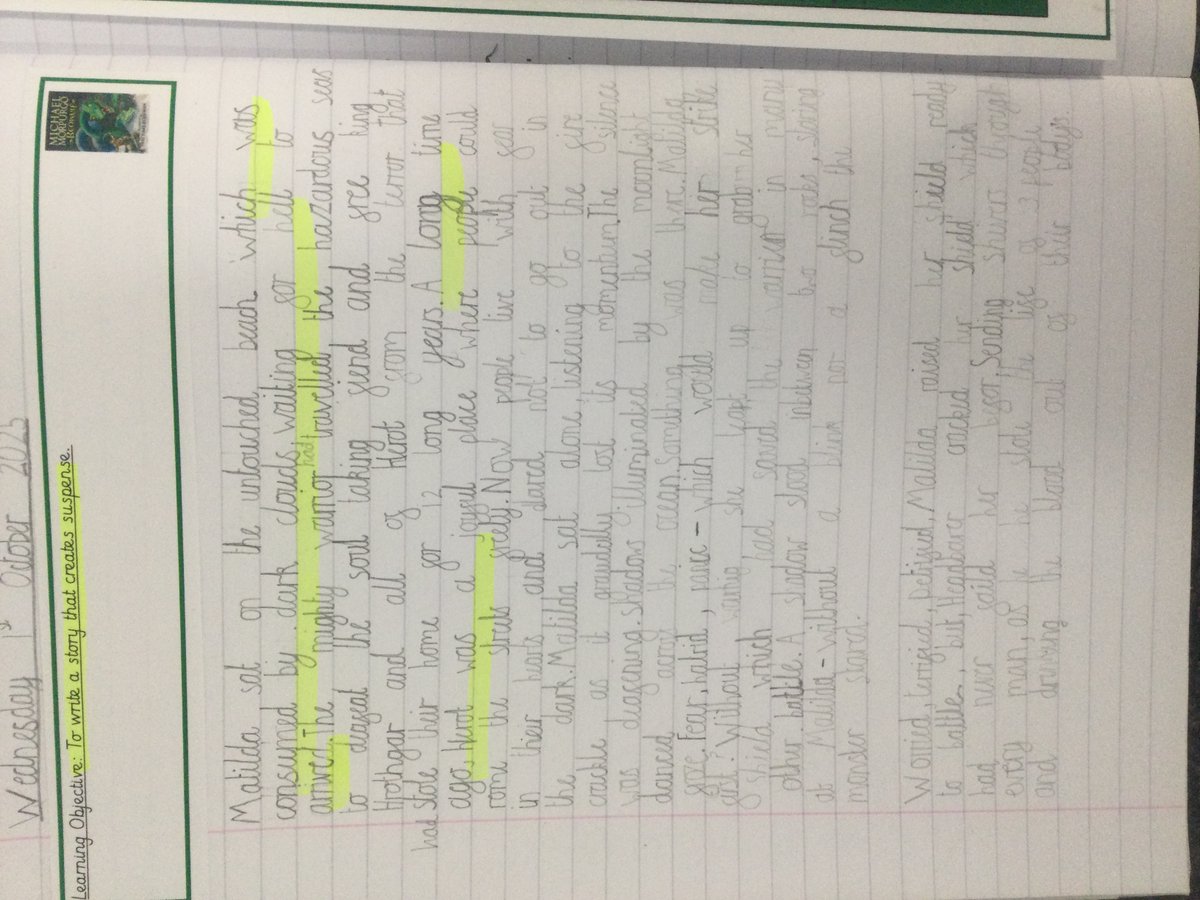 Wednesday 1st October 2025
Learning Objective: To write a story that creates suspense.
MICHAEL
MORPURGO
BEOWULF
Matilda sat on the untouched beach which was
consumed by dark clouds waiting for hell to
arrive! The mighty warrior had travelled the hazardous seas
to defeat the soul taking fiend and free king
Hrothgar and all of Herot from the terror that
had stole their home for 12 long years. A long time
ago, herot was a joyful place where people could
rome the streets freely. Now people live with fear
in their hearts and dared not to go out in
the dark. Matilda sat alone, listening to the fire
crackle as it gradully lost its momentum. The silence
was deafening. Shadows illuminated by the moonlight
danced across the ocean. Something was there. Matilda
froze. Fear, hatrid, panic - which would make her strike
first? Without warning she lept up to grab her
shield which had saved the warrior in many
other battle. A shadow stood inbetween two rocks, staring
at Matilda - without a blink nor a flinch the
monster stared.
Worried, terrified, petified, Matilda raised her shield ready
to battle, but, Headbearer cracked her shield which
had never failed her befor, Sending shivers through
every man, as he he stole the life of 3 people
and draining the blood out of their bodys.